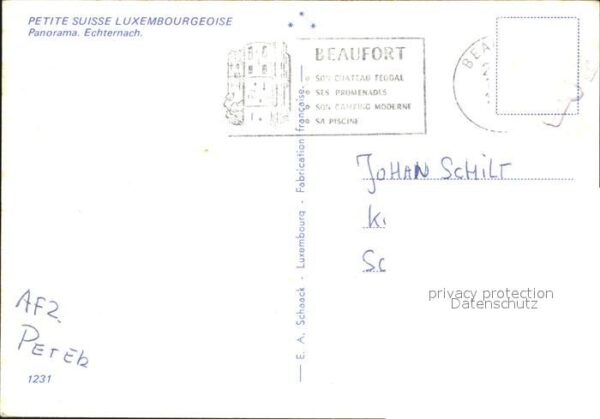 PETITE SUISSE LUXEMBOURGEOISE
Panorama. Echternach.
BEAUFORT
SON CHATEAU FEODAL
SES PROMENADES
SON CAMPING MODERNE
SA PISCINE
BEA
JOHAN SCHILT
K.
Sc
privacy protection
Datenschutz
AFZ.
PETER
1231
— E. A. Schaack - Luxembourg - Fabrication française. —